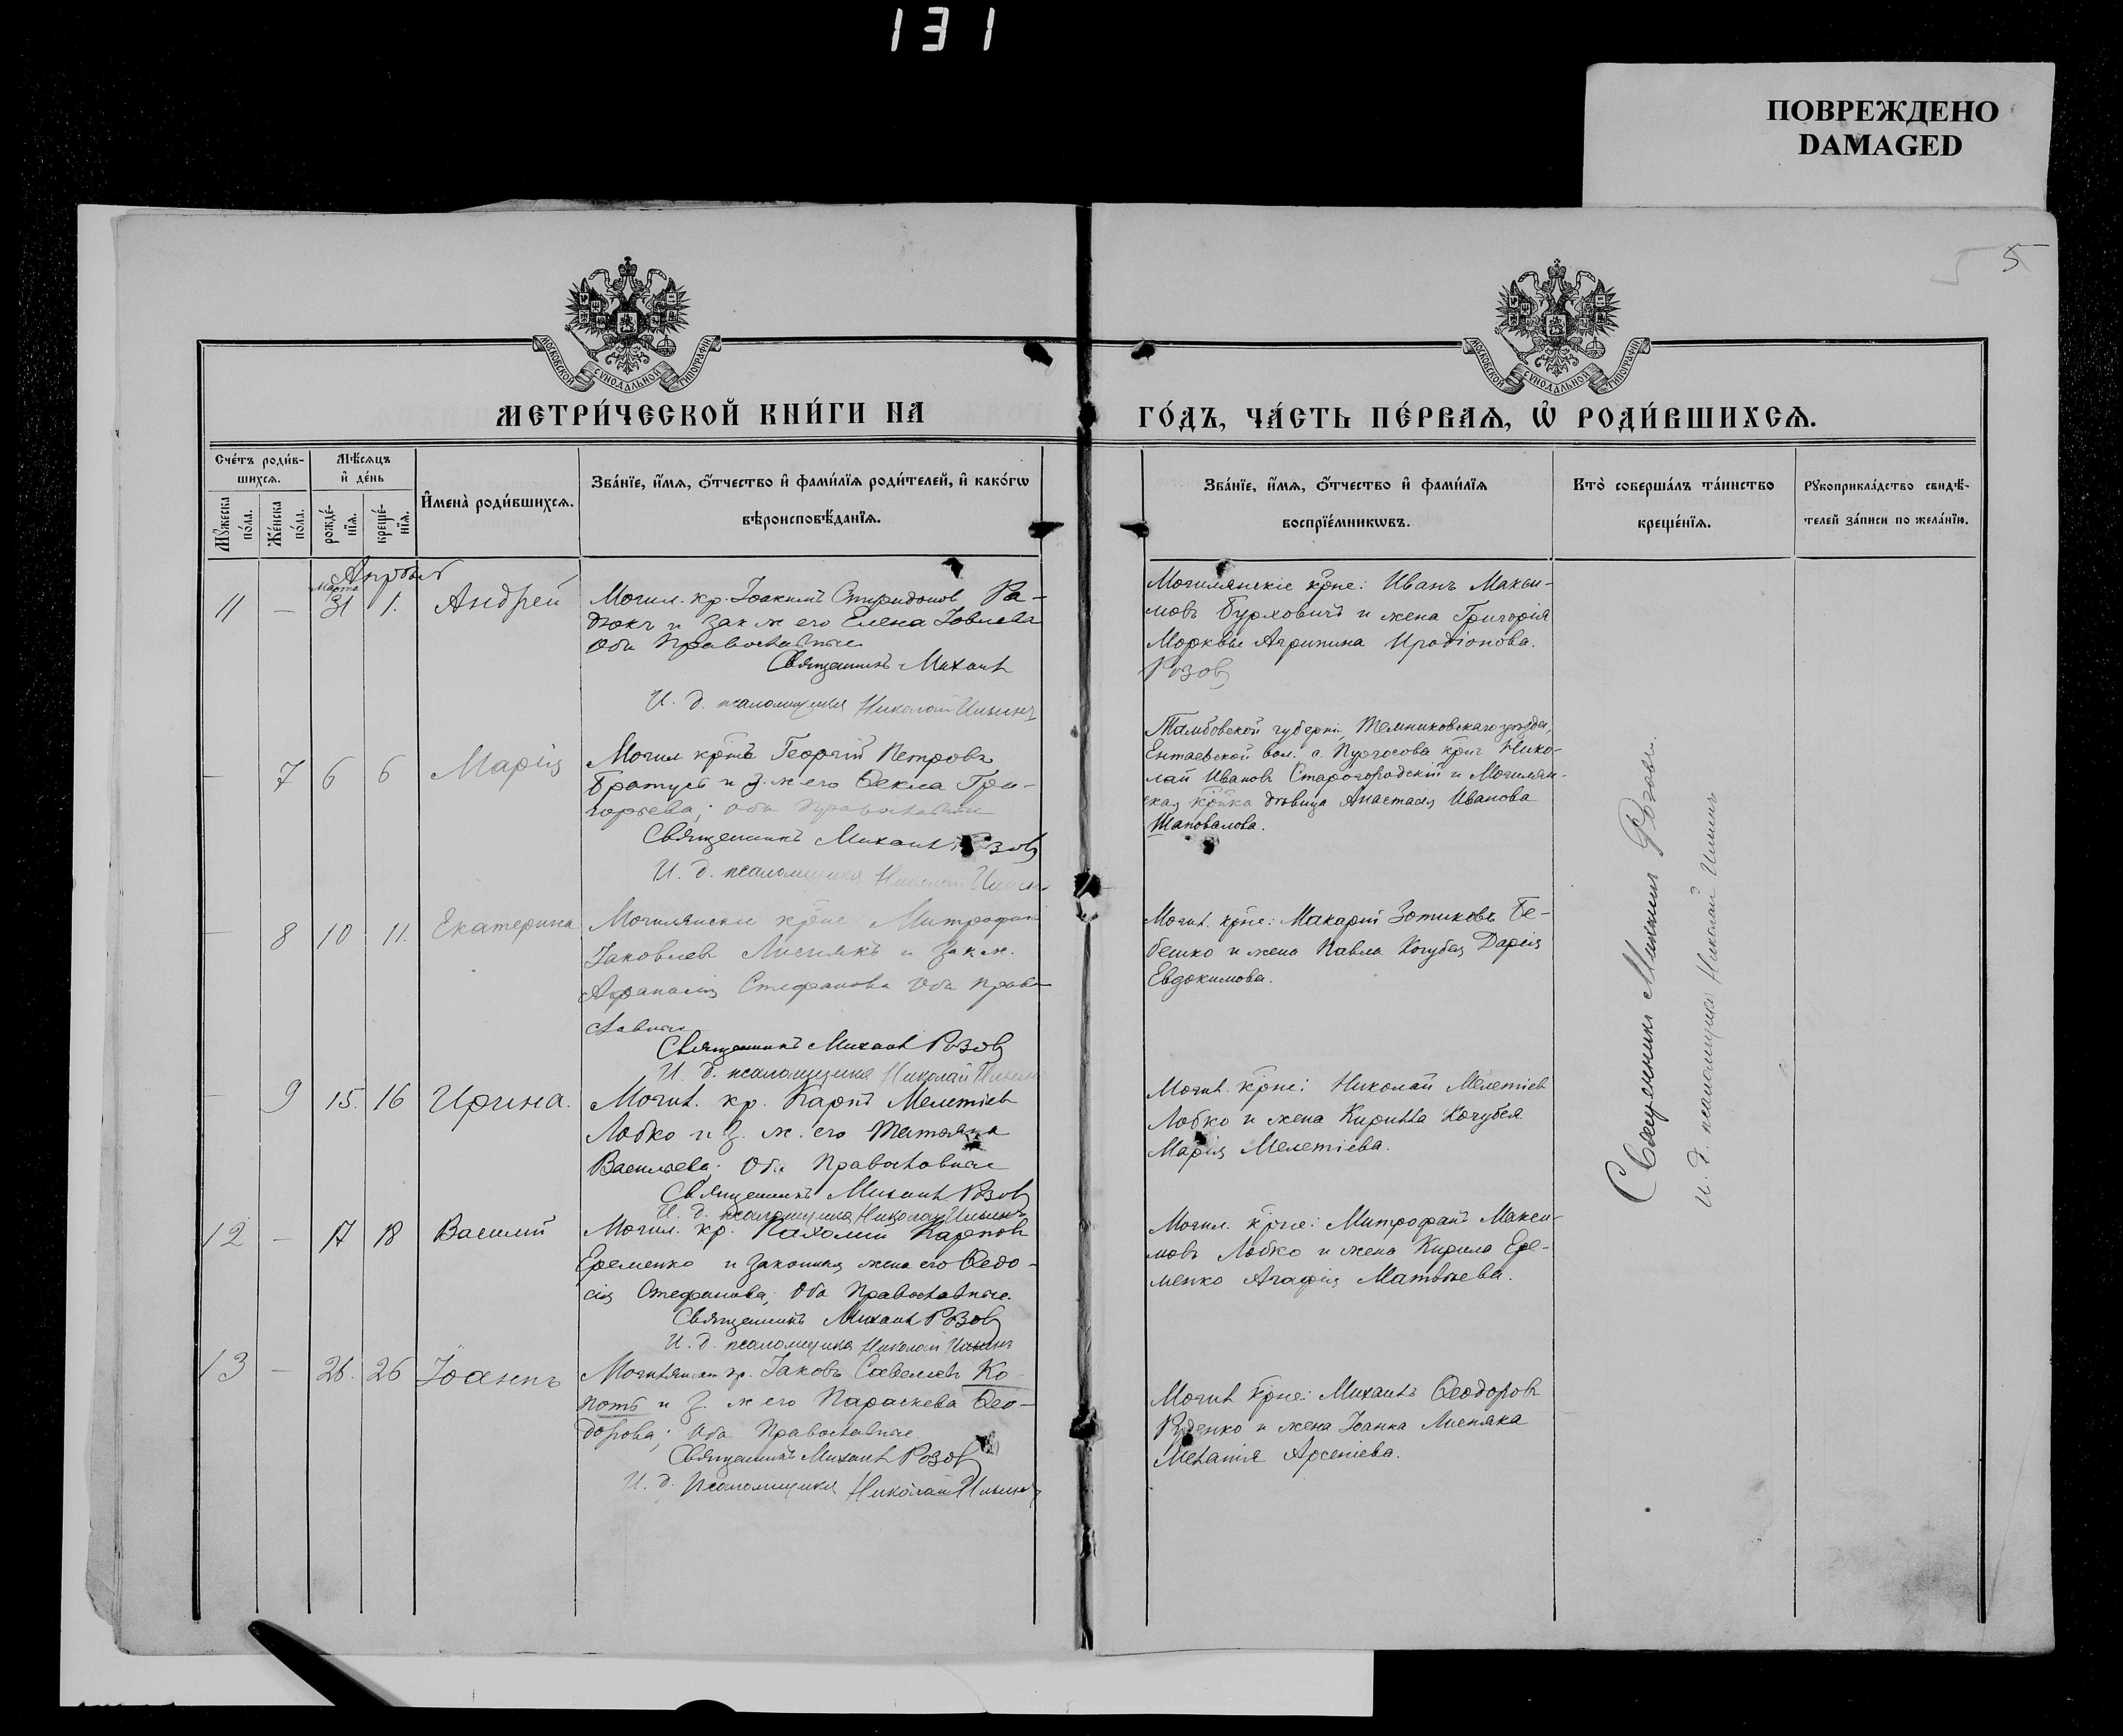 131
ПОВРЕЖДЕНО
DAMAGED
5 5
МОСКОВСКОЙ СѴНОДАЛЬНОЙ ТИПОГРАФІИ
МОСКОВСКОЙ СѴНОДАЛЬНОЙ ТИПОГРАФІИ
МЕТРИ́ЧЕСКОЙ КНИ́ГИ НА
ГО́ДЪ, ЧА́СТЬ ПЕ́РВАѦ, Ѡ҆ РОДИ́ВШИХСѦ.
Сче́тъ роди́в-
шихсѧ.
Мѣ́сѧцъ
и҆ де́нь
Мꙋ́жеска
по́ла.
Же́нска
по́ла.
рожде́-
нїѧ.
креще́-
нїѧ.
И҆мена̀ роди́вшихсѧ.
Зва́нїе, и҆́мѧ, ѻ҆́тчество и҆ фами́лїѧ роди́телей, и҆ како́гѡ
вѣроисповѣ́данїѧ.
Зва́нїе, и҆́мѧ, ѻ҆́тчество и҆ фами́лїѧ
воспрїе́мникѡвъ.
Кто̀ соверша́лъ та́инство
креще́нїѧ.
Рꙋкоприкла́дство свидѣ́-
телей за́писи по жела́нїю.
Апрѣль
Марта
11 — 31 1. Андрей
Могил. кр. Іоакимъ Спиридонов Ра-
дюкъ и зак ж его Елена Іовлева
Оба Православные
Священникъ Михаил
И. д. псаломщика Николай Ильинъ
Могилянскіе крне: Иванъ Макси-
мовъ Бурховичъ и жена Григорія
Морквы Агрипина Иродіонова.
Розовъ
— 7 6 6 Марія
Могил крнъ Георгій Петровъ
Братусь и з. ж его Ѳекла Гри-
горьева; оба православные
Священникъ Михаил Розовъ
И. д. псаломщика Николай Ильинъ
Тамбовской губерніи, Темниковскаго уѣзда,
Ентаевской вол. с. Пургосова крнъ Нико-
лай Ивановъ Старогородскій и Могилян-
ская крнка дѣвица Анастасія Иванова
Шаповалова.
— 8 10 11. Екатерина
Могилянскіе крне Митрофан
Іаковлев Лиснякъ и зак ж.
Афанасія Стефанова Оба право
славные
Священникъ Михаил Розовъ
И. д. псаломщика Николай Ильинъ
Могил. крне: Макарій Зотиковъ Бе-
бешко и жена Павла Кочубея Дарія
Евдокимова.
— 9 15. 16 Ирина.
Могил. кр. Карпъ Мелетіев
Лобко и з. ж. его Татьяна
Васильева. Оба Православные
Священникъ Михаил Розовъ
И. д. псаломщика Николай Ильинъ
Могил. крне: Николай Мелетіев
Лобко и жена Кирилла Кочубея
Марія Мелетіева.
12 — 17 18 Василий
Могил. кр. Пахомий Карпов
Еременко и законная жена его Ѳедо-
сія Стефанова; Оба Православные.
Священникъ Михаил Розовъ
И. д. псаломщика Николай Ильинъ
Могил. крне: Митрофанъ Макси-
мовъ Лобко и жена Кирила Ере-
менко Агафія Матвѣева.
13 — 26. 26 Іоаннъ
Могилянскій кр. Іаковъ Савелиев Ко
потъ и з. ж его Параскева Ѳео-
дорова; Оба Православные
Священникъ Михаил Розовъ
И. д. Псаломщика Николай Ильинъ
Могил крне: Михаилъ Ѳеодоровъ
Руденко и жена Іоанна Лисняка
Меланія Арсеніева.
Священникъ Михаилъ Розовъ.
И. д. псаломщика Николай Ильинъ